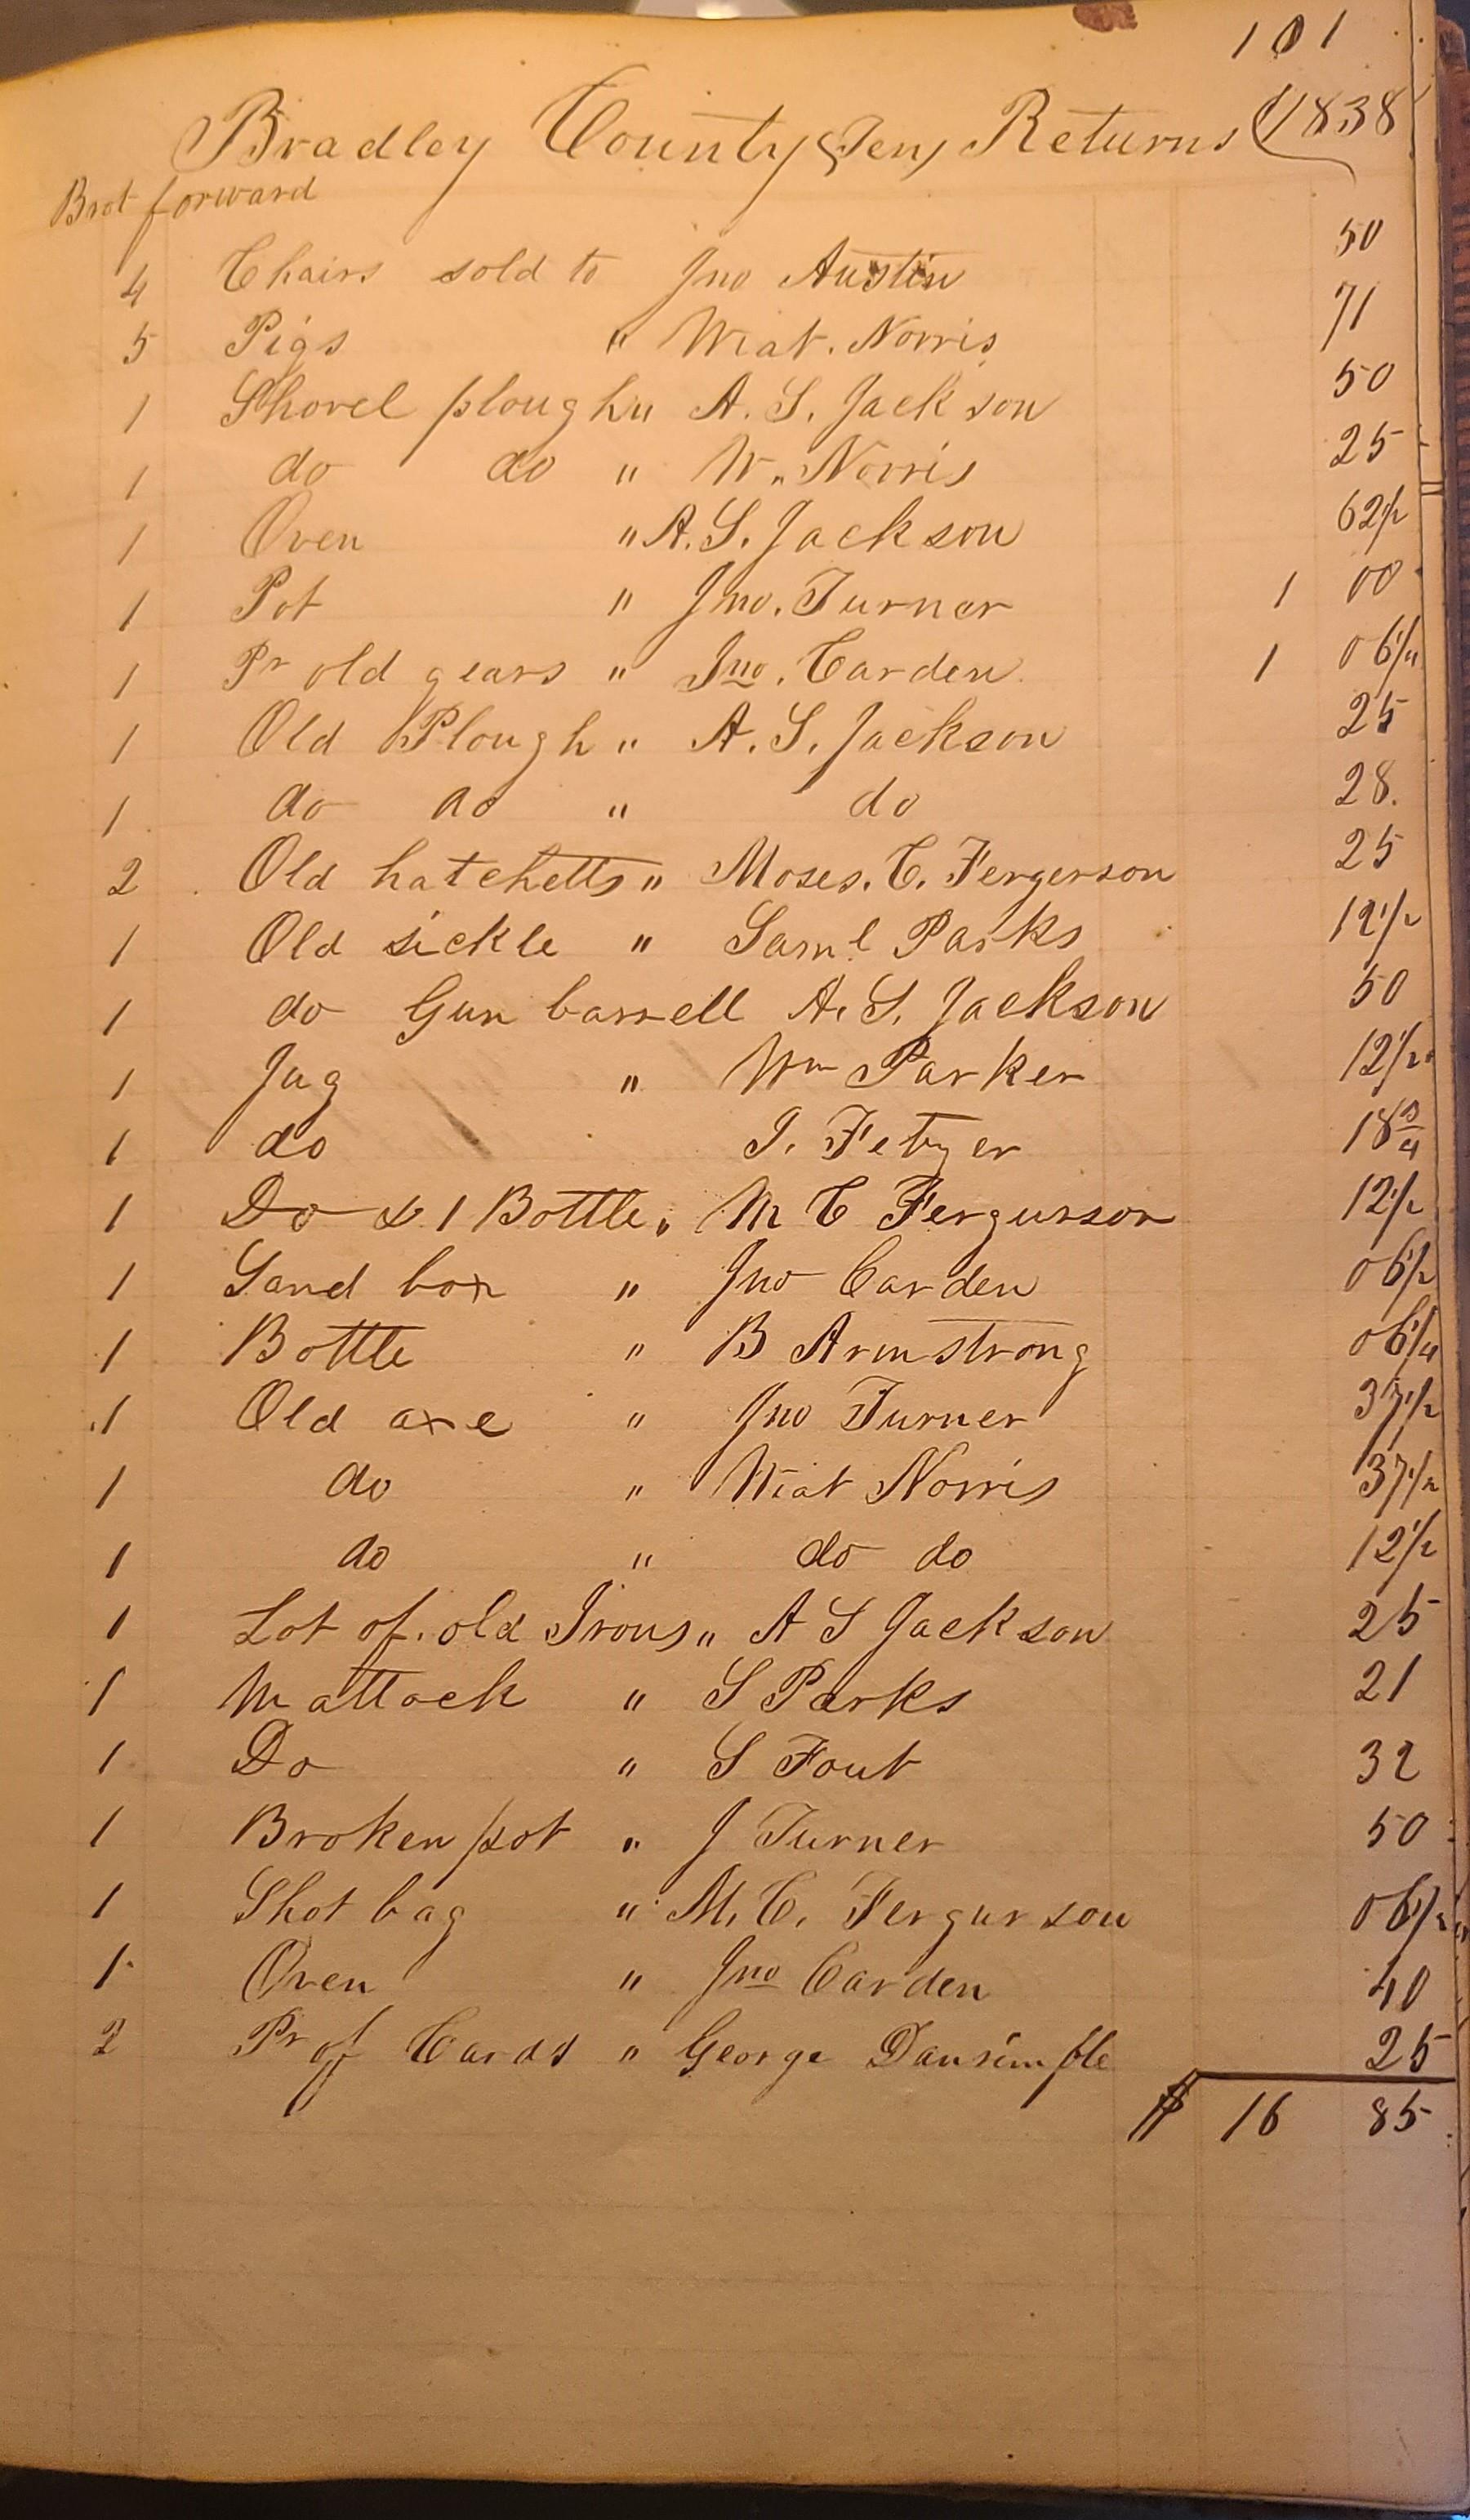 101
Bradley County (Ten) Returns (1838
Brot forward
4 Chairs sold to Jno Austin 50
5 Pigs " Wiat. Norris 71
1 Shovel plough " A. S. Jackson 50
1 do do " W. Norris 25
1 Oven " A. S. Jackson 62 1/2
1 Pot " Jno. Turner 1 00
1 Pr old gears " Jno. Carden 1 06 1/4
1 Old Plough " A. S. Jackson 25
1 do do " do 28.
2 Old hatchetts " Moses. C. Fergerson 25
1 Old sickle " Saml Parks 12 1/2
1 do Gun barrell A. S. Jackson 50
1 Jug " Wm Parker 12 1/2
1 do J. Fetzer 18 3/4
1 Do & 1 Bottle " M C Fergurson 12 1/2
1 Sand box " Jno Carden 06 1/2
1 Bottle " B Armstrong 06 1/4
1 Old axe " Jno Turner 37 1/2
1 do " Wiat Norris 37 1/2
1 do " do do 12 1/2
1 Lot of old Irons " A S Jackson 25
1 Mattock " S Parks 21
1 Do " S Fout 32
1 Broken pot " J Turner 50
1 Shot bag " M. C. Fergurson 06 1/2
1 Oven " Jno Carden 40
2 Pr of Cards " George Dansimple 25
$ 16 85